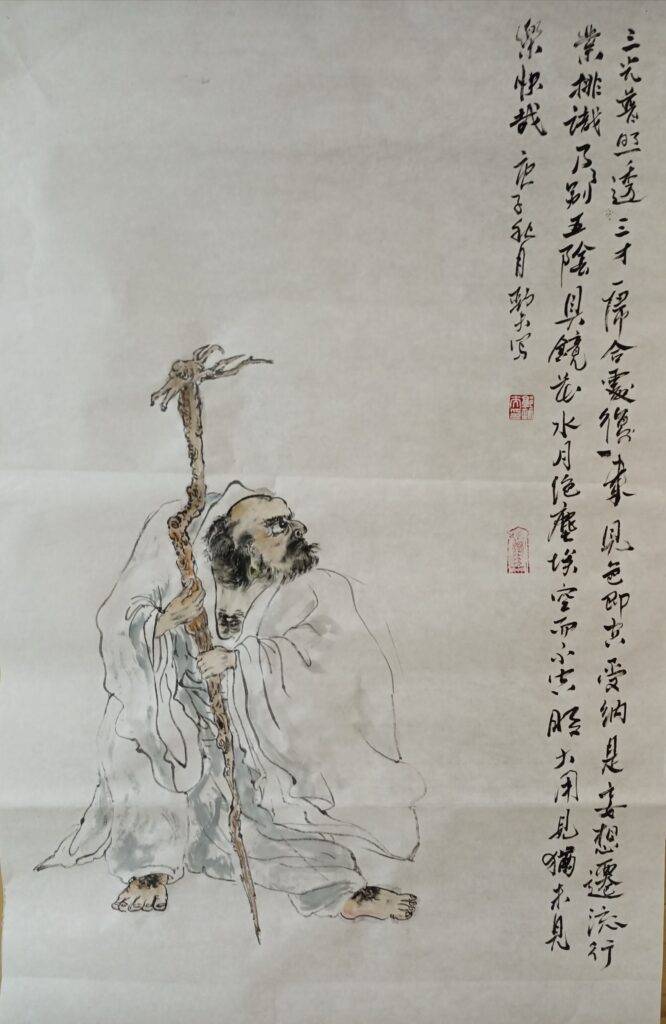 三光普照透三才 合處復一來見色即空受納是妄想遷流行
業排識乃了別五陰具鏡花水月絕塵埃空而不空 大用見猶未見
樂快哉 庚子秋月 写